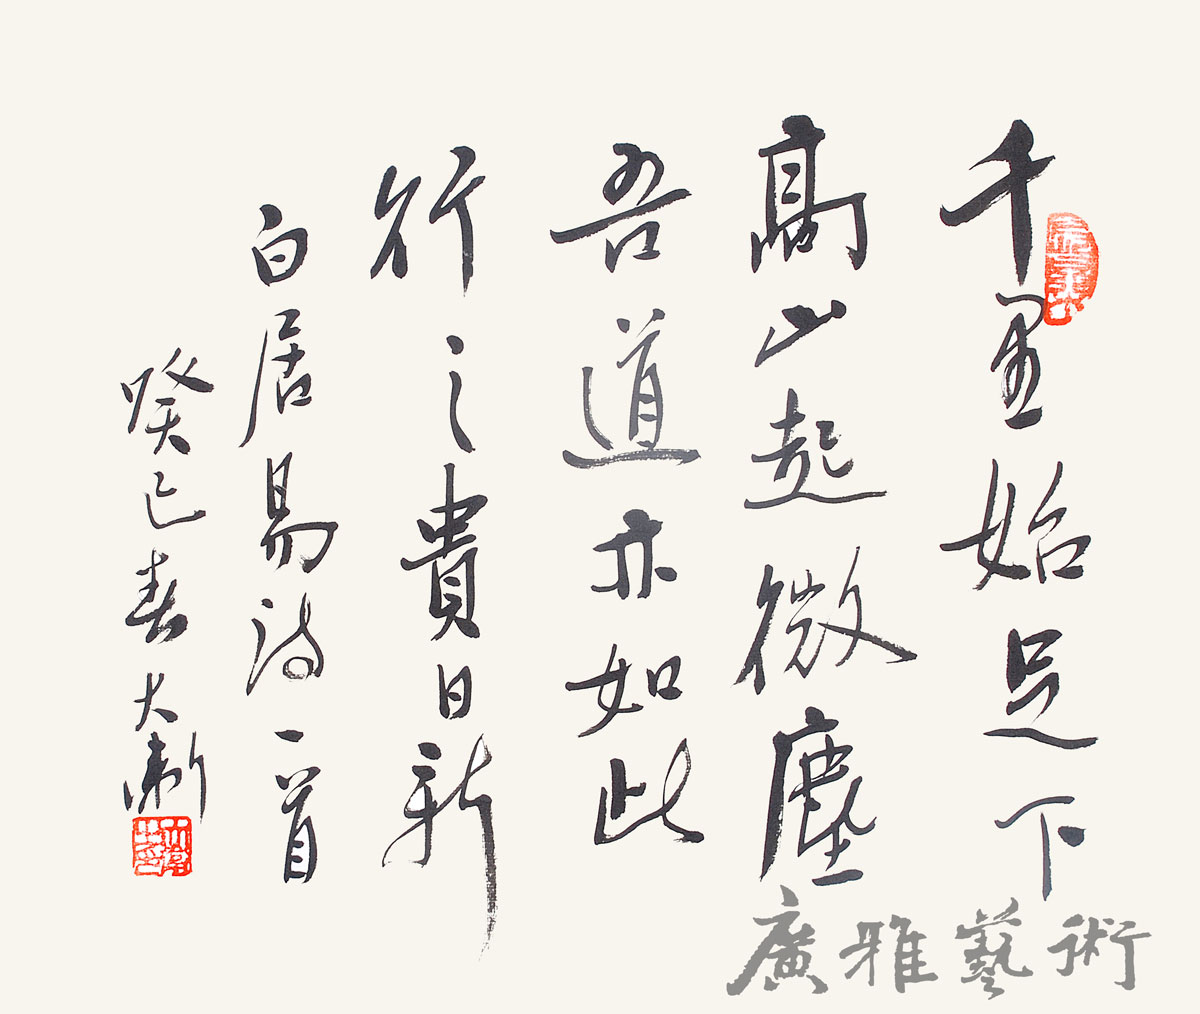 千里始足下
高山起微塵
吾道亦如此
行之貴日新
白居易詩一首
癸巳春大衛
廣雅藝術